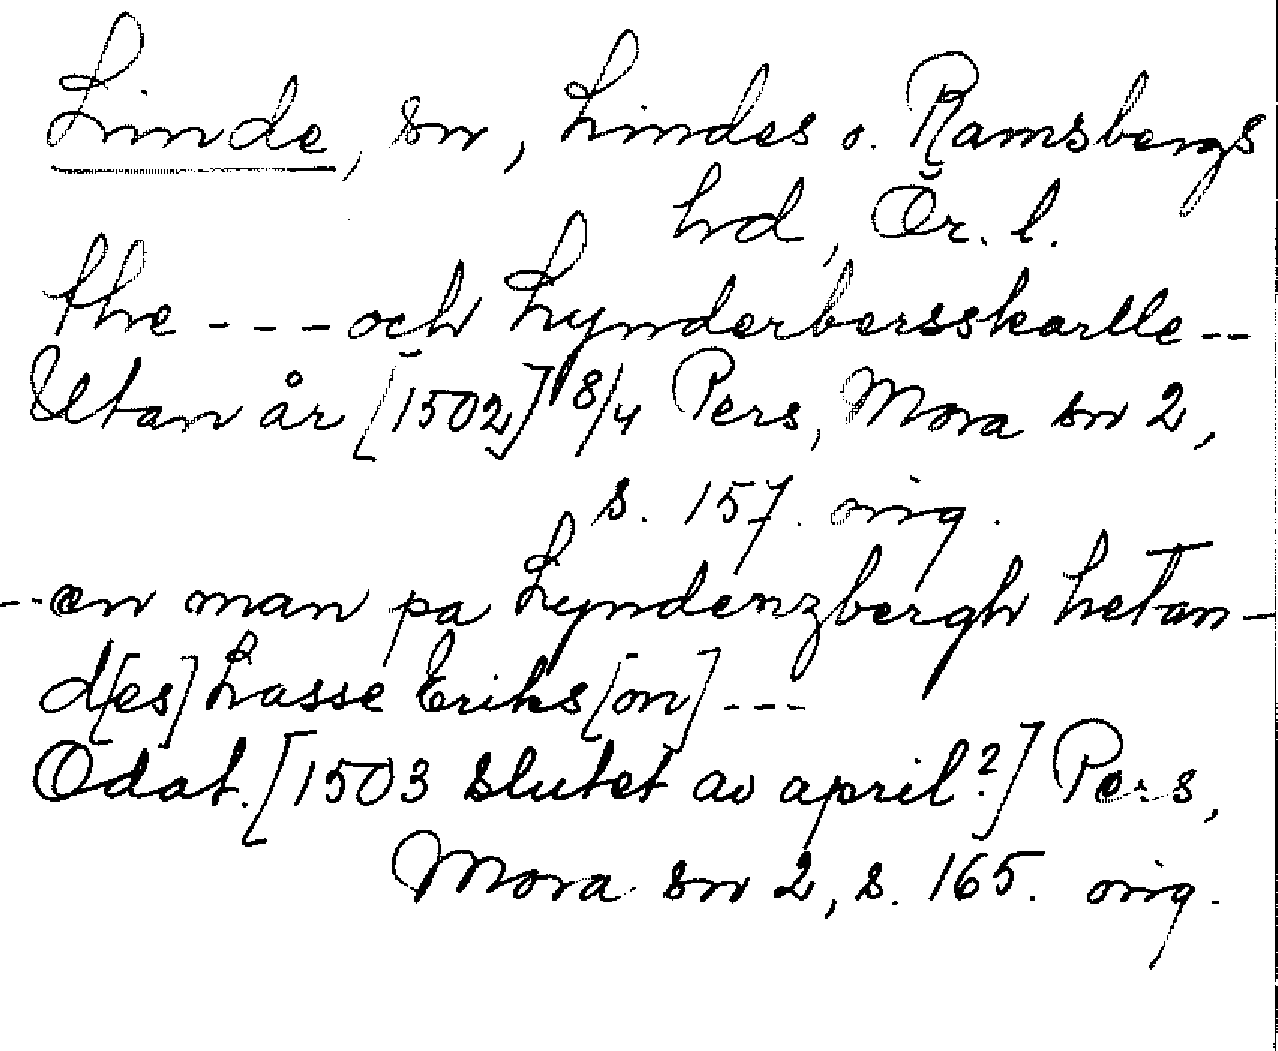 Linde, sn, Lindes o. Ramsbergs
hd, Ör. l.
the --- och Lynderbersskarlle --
Utan år [1502] 8/4 Pers, Mora sn 2,
s. 157. orig.
-- en man pa Lyndenzbergh hetan-
d[es] Lasse Eriks[on] ---
Odat. [1503 slutet av april?] Pers,
Mora sn 2, s. 165. orig.